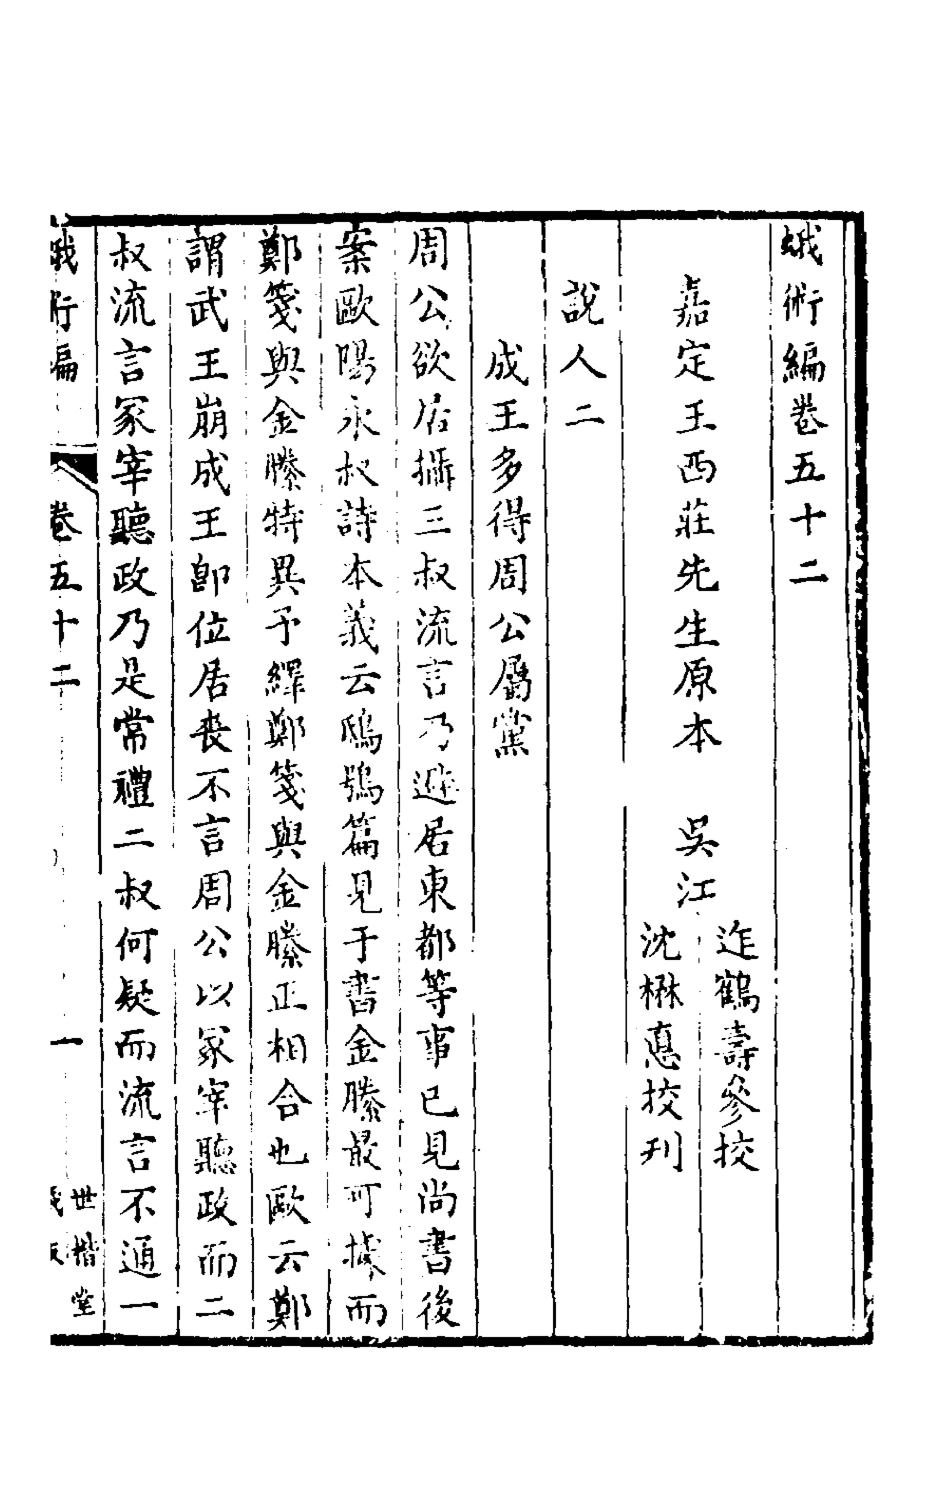 蛾術編卷五十二
嘉定王西莊先生原本　吳江
迮鶴壽參校
沈楙悳挍刊
說人二
成王多得周公屬黨
周公欲居攝三叔流言乃避居東都等事已見尚書後
案歐陽永叔詩本義云鴟鴞篇見于書金縢最可據而
鄭箋與金縢特異予繹鄭箋與金縢正相合也歐云鄭
謂武王崩成王卽位居喪不言周公以冢宰聽政而二
叔流言冢宰聽政乃是常禮二叔何疑而流言不通一
蛾術編　卷五十二　一　世楷堂